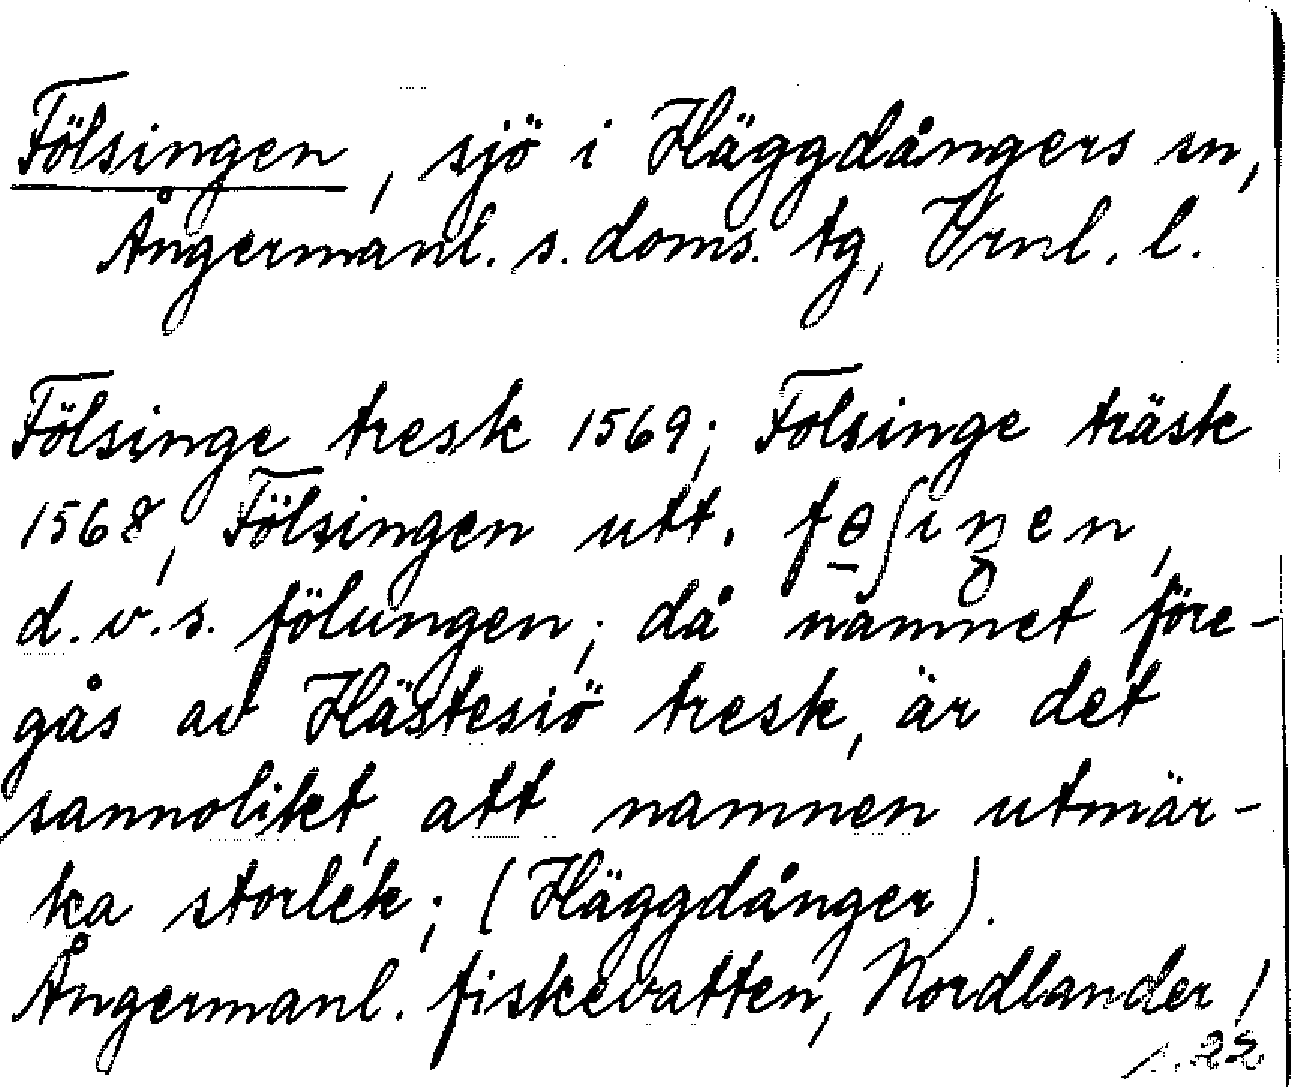 Fölsingen, sjö i Häggdångers sn,
Ångermanl. s. doms. tg, Vrnl. l.
Fölsinge tresk 1569; Folsinge träsk
1568, Fölsingen utt. fɵʃıŋen,
d.v.s. fölungen; då namnet före-
gås av Hästesiö tresk, är det
sannolikt, att namnen utmär-
ka storlek; (Häggdånger).
Ångermanl. fiskevatten, Nordlander,
s. 22